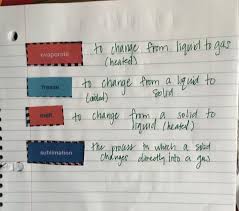 evaporate to change from liquid to gas
(heated)
freeze to change from a liquid to
(cooled) solid
melt to change from a solid to
liquid (heated)
sublimation the process in which a solid
changes directly into a gas.